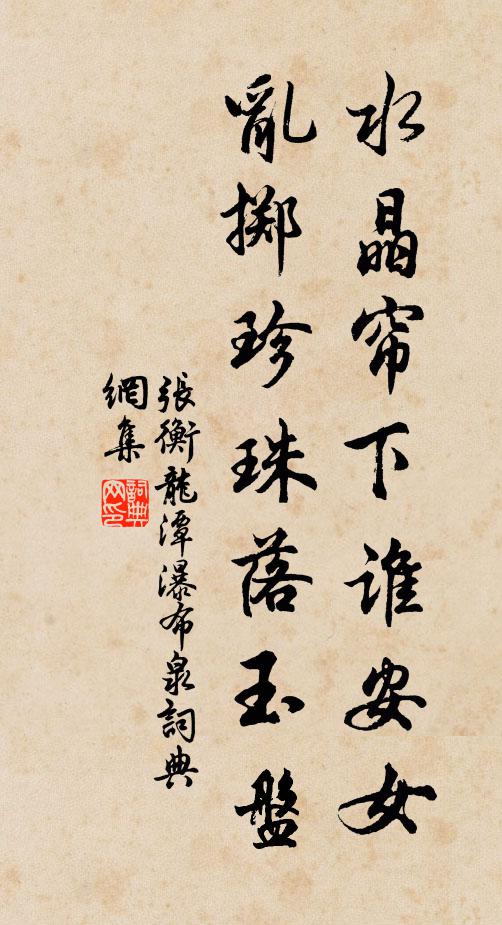 水晶帘下谁安女
亂掷珍珠落玉盤
張衡龍潭瀑布泉詞典
網集
詞典
网印